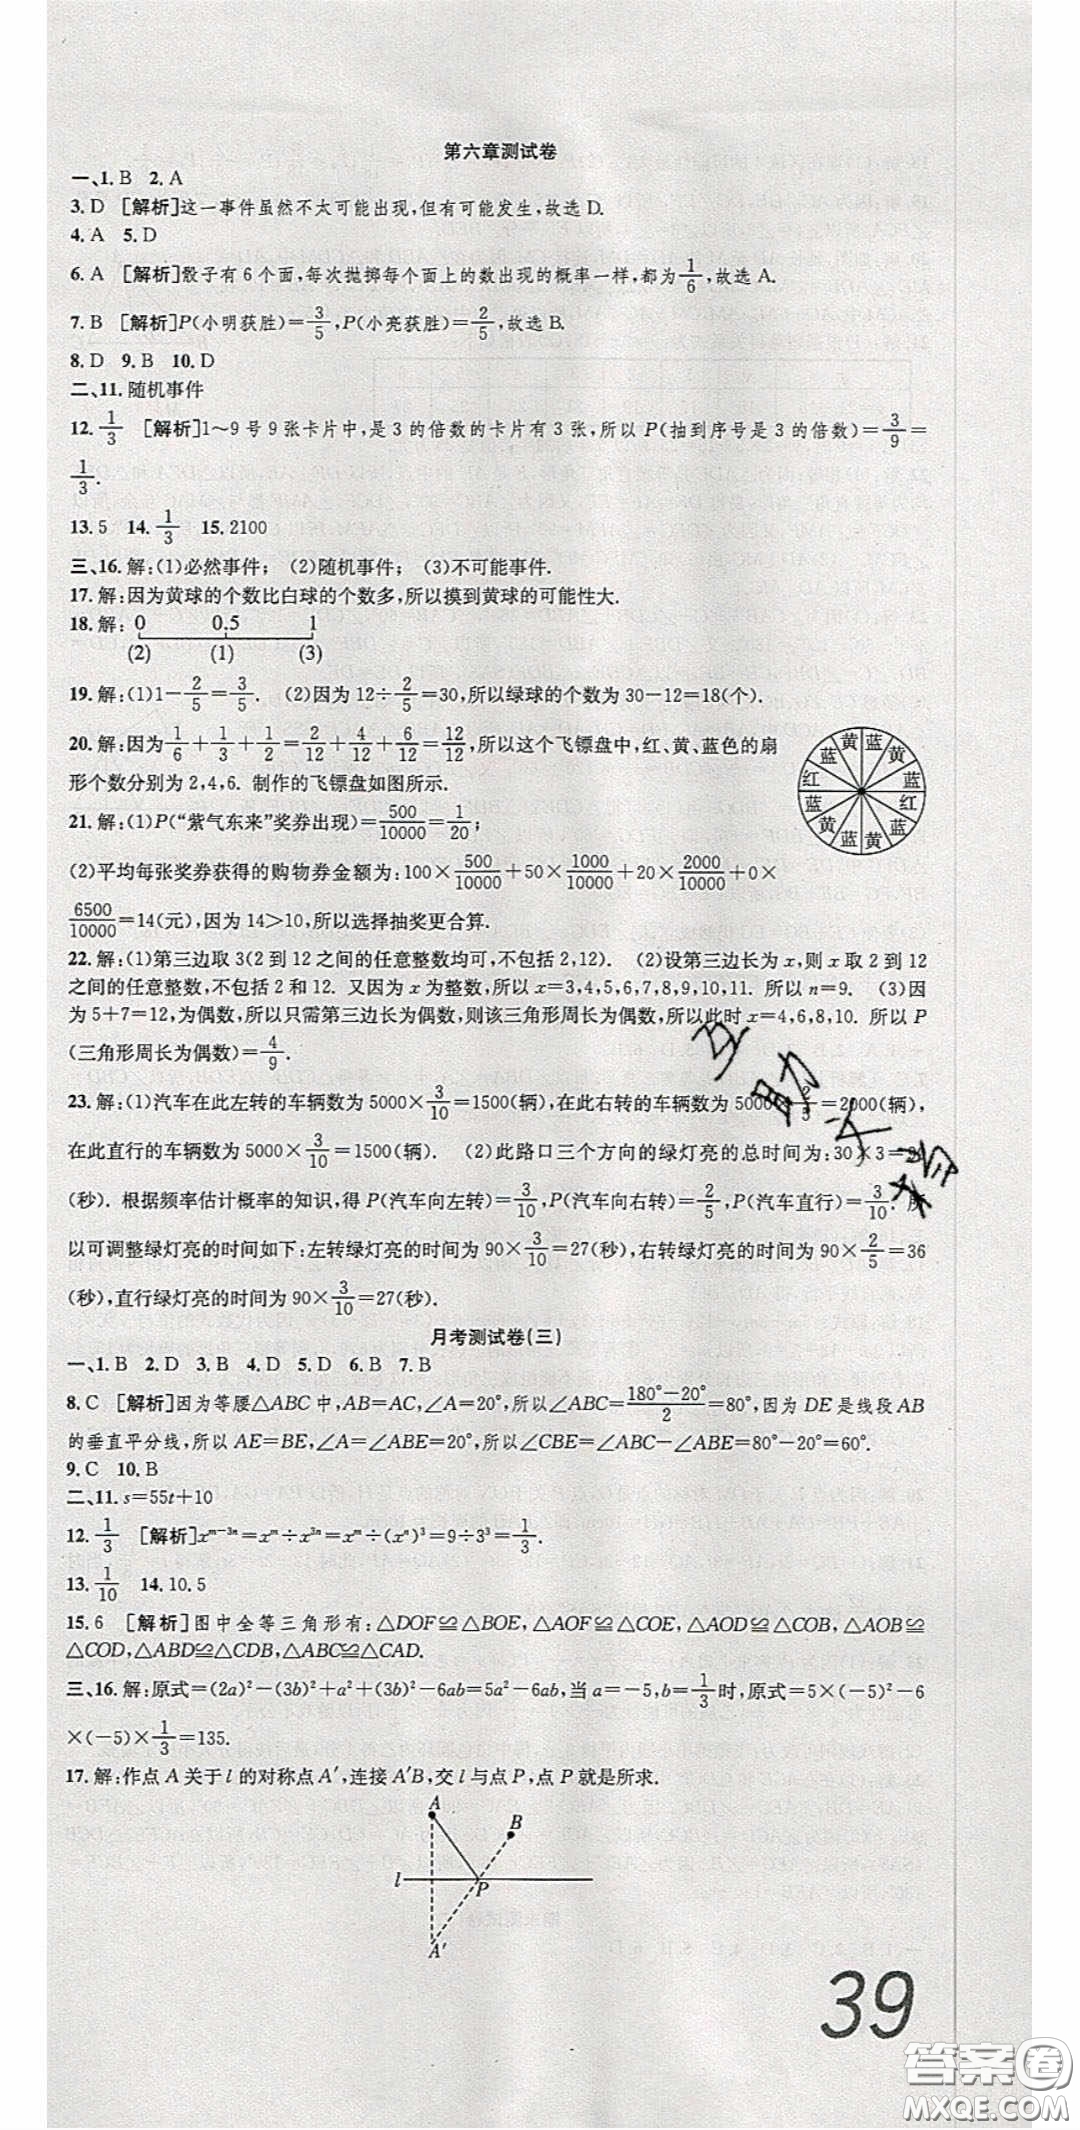 第六章测试卷
一、1. B 2. A
3. D [解析]这一事件虽然不太可能出现,但有可能发生,故选 D.
4. A 5. D
6. A [解析]骰子有 6 个面,每次抛掷每个面上的数出现的概率一样,都为1/6,故选 A.
7. B [解析]P(小明获胜)=3/5,P(小亮获胜)=2/5,故选 B.
8. D 9. B 10. D
二、11. 随机事件
12. 1/3 [解析]1~9 号 9 张卡片中,是 3 的倍数的卡片有 3 张,所以 P(抽到序号是 3 的倍数)=3/9=
1/3.
13. 5 14. 1/3 15. 2100
三、16. 解:(1)必然事件; (2)随机事件; (3)不可能事件.
17. 解:因为黄球的个数比白球的个数多,所以摸到黄球的可能性大.
18. 解: 0 0.5 1
(2) (1) (3)
19. 解:(1)1−2/5=3/5. (2)因为 12÷2/5=30,所以绿球的个数为 30−12=18(个).
20. 解:因为1/6+1/3+1/2=2/12+4/12+6/12=12/12,所以这个飞镖盘中,红、黄、蓝色的扇
形个数分别为 2,4,6. 制作的飞镖盘如图所示.
黄 蓝 黄 蓝 红 蓝 黄 蓝 黄 蓝 红 蓝
21. 解:(1)P(“紫气东来”奖券出现)=500/10000=1/20;
(2)平均每张奖券获得的购物券金额为:100×500/10000+50×1000/10000+20×2000/10000+0×
6500/10000=14(元),因为 14>10,所以选择抽奖更合算.
22. 解:(1)第三边取 3(2 到 12 之间的任意整数均可,不包括 2,12). (2)设第三边长为 x,则 x 取 2 到 12
之间的任意整数,不包括 2 和 12. 又因为 x 为整数,所以 x=3,4,5,6,7,8,9,10,11. 所以 n=9. (3)因
为 5+7=12,为偶数,所以只需第三边长为偶数,则该三角形周长为偶数,所以此时 x=4,6,8,10. 所以 P
(三角形周长为偶数)=4/9.
23. 解:(1)汽车在此左转的车辆数为 5000×3/10=1500(辆),在此右转的车辆数为 5000×2/3=2000(辆),
在此直行的车辆数为 5000×3/10=1500(辆). (2)此路口三个方向的绿灯亮的总时间为:30×3=
(秒). 根据频率估计概率的知识,得 P(汽车向左转)=3/10,P(汽车向右转)=2/5,P(汽车直行)=3/10. 所
以可调整绿灯亮的时间如下:左转绿灯亮的时间为 90×3/10=27(秒),右转绿灯亮的时间为 90×2/5=36
(秒),直行绿灯亮的时间为 90×3/10=27(秒).
月考测试卷(三)
一、1. B 2. D 3. B 4. D 5. D 6. B 7. B
8. C [解析]因为等腰△ABC 中,AB=AC,∠A=20°,所以∠ABC=180°−20°/2=80°,因为 DE 是线段 AB
的垂直平分线,所以 AE=BE,∠A=∠ABE=20°,所以∠CBE=∠ABC−∠ABE=80°−20°=60°.
9. C 10. B
二、11. s=55t+10
12. 1/3 [解析]x^(m−3n)=x^m÷x^(3n)=x^m÷(x^n)³=9÷3³=1/3.
13. 1/10 14. 10.5
15. 6 [解析]图中全等三角形有:△DOF≌△BOE,△AOF≌△COE,△AOD≌△COB,△AOB≌
△COD,△ABD≌△CDB,△ABC≌△CAD.
三、16. 解:原式=(2a)²−(3b)²+a²+(3b)²−6ab=5a²−6ab,当 a=−5,b=1/3时,原式=5×(−5)²−6
×(−5)×1/3=135.
17. 解:作点 A 关于 l 的对称点 A′,连接 A′B,交 l 与点 P,点 P 就是所求.
A
B
l
P
A′
39
答案卷
MXQE.COM